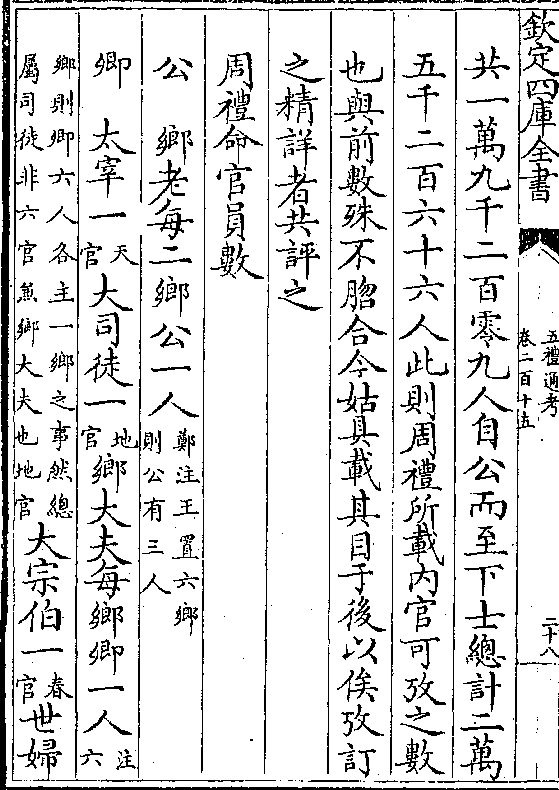 欽定四庫全書
五禮通考
卷二百十五
二十八
共一萬九千二百零九人自公而至下士總計二萬
五千二百六十六人此則周禮所載内官可攷之數
也與前數殊不脗合今姑具載其目于後以俟攷訂
之精詳者共評之
周禮命官員數
公　鄉老每二鄉公一人鄭注王置六鄉則公有三人
卿　太宰一天官大司徒一地官鄉大夫每鄉卿一人注六
鄉則卿六人各主一鄉之事然總屬司徒非六官兼鄉大夫也地官大宗伯一春官世婦